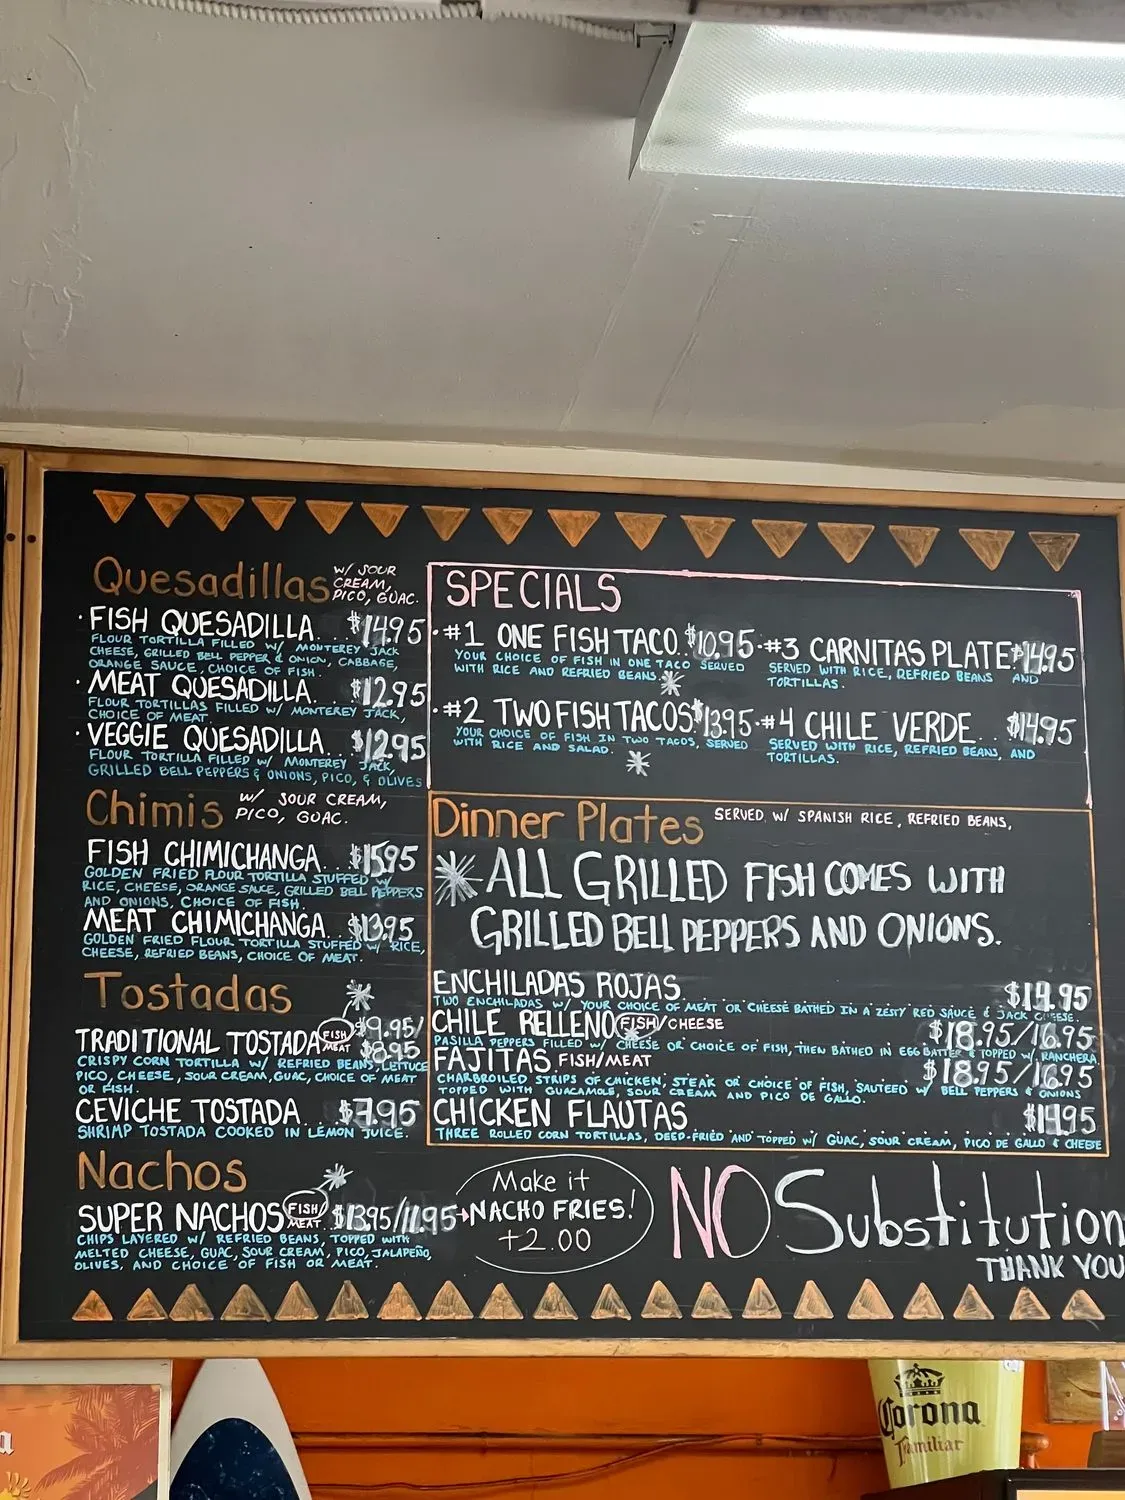 Quesadillas w/ SOUR
CREAM,
PICO, GUAC.
· FISH QUESADILLA... $14.95
FLOUR TORTILLA FILLED W/ MONTEREY JACK
CHEESE, GRILLED BELL PEPPER & ONION, CABBAGE,
ORANGE SAUCE, CHOICE OF FISH.
· MEAT QUESADILLA.. $12.95
FLOUR TORTILLAS FILLED W/ MONTEREY JACK,
CHOICE OF MEAT.
· VEGGIE QUESADILLA... $12.95
FLOUR TORTILLA FILLED W/ MONTEREY JACK,
GRILLED BELL PEPPERS & ONIONS, PICO, & OLIVES
Chimis w/ SOUR CREAM,
PICO, GUAC.
FISH CHIMICHANGA... $15.95
GOLDEN FRIED FLOUR TORTILLA STUFFED W/
RICE, CHEESE, ORANGE SAUCE, GRILLED BELL PEPPERS
AND ONIONS, CHOICE OF FISH.
MEAT CHIMICHANGA.. $13.95
GOLDEN FRIED FLOUR TORTILLA STUFFED W/ RICE,
CHEESE, REFRIED BEANS, CHOICE OF MEAT.
Tostadas
TRADITIONAL TOSTADA FISH $9.95/
MEAT $8.95
CRISPY CORN TORTILLA W/ REFRIED BEANS, LETTUCE
PICO, CHEESE, SOUR CREAM, GUAC, CHOICE OF MEAT
OR FISH.
CEVICHE TOSTADA... $7.95
SHRIMP TOSTADA COOKED IN LEMON JUICE.
Nachos
SUPER NACHOS FISH/ $13.95/11.95
MEAT
CHIPS LAYERED W/ REFRIED BEANS, TOPPED WITH
MELTED CHEESE, GUAC, SOUR CREAM, PICO, JALAPEÑO,
OLIVES, AND CHOICE OF FISH OR MEAT.
Make it
NACHO FRIES!
+2.00
SPECIALS
· #1 ONE FISH TACO. $10.95
YOUR CHOICE OF FISH IN ONE TACO SERVED
WITH RICE AND REFRIED BEANS.
· #2 TWO FISH TACOS $13.95
YOUR CHOICE OF FISH IN TWO TACOS, SERVED
WITH RICE AND SALAD.
· #3 CARNITAS PLATE $14.95
SERVED WITH RICE, REFRIED BEANS AND
TORTILLAS.
· #4 CHILE VERDE... $14.95
SERVED WITH RICE, REFRIED BEANS, AND
TORTILLAS.
Dinner Plates SERVED W/ SPANISH RICE, REFRIED BEANS,
ALL GRILLED FISH COMES WITH
GRILLED BELL PEPPERS AND ONIONS.
ENCHILADAS ROJAS $14.95
TWO ENCHILADAS W/ YOUR CHOICE OF MEAT OR CHEESE BATHED IN A ZESTY RED SAUCE & JACK CHEESE.
CHILE RELLENO FISH/CHEESE $18.95/16.95
PASILLA PEPPERS FILLED W/ CHEESE OR CHOICE OF FISH, THEN BATHED IN EGG BATTER & TOPPED W/ RANCHERA
FAJITAS FISH/MEAT $18.95/16.95
CHARBROILED STRIPS OF CHICKEN, STEAK OR CHOICE OF FISH, SAUTEED W/ BELL PEPPERS & ONIONS
TOPPED WITH GUACAMOLE, SOUR CREAM AND PICO DE GALLO.
CHICKEN FLAUTAS $14.95
THREE ROLLED CORN TORTILLAS, DEEP-FRIED AND TOPPED W/ GUAC, SOUR CREAM, PICO DE GALLO & CHEESE
NO Substitution
THANK YOU
Corona
Familiar
a